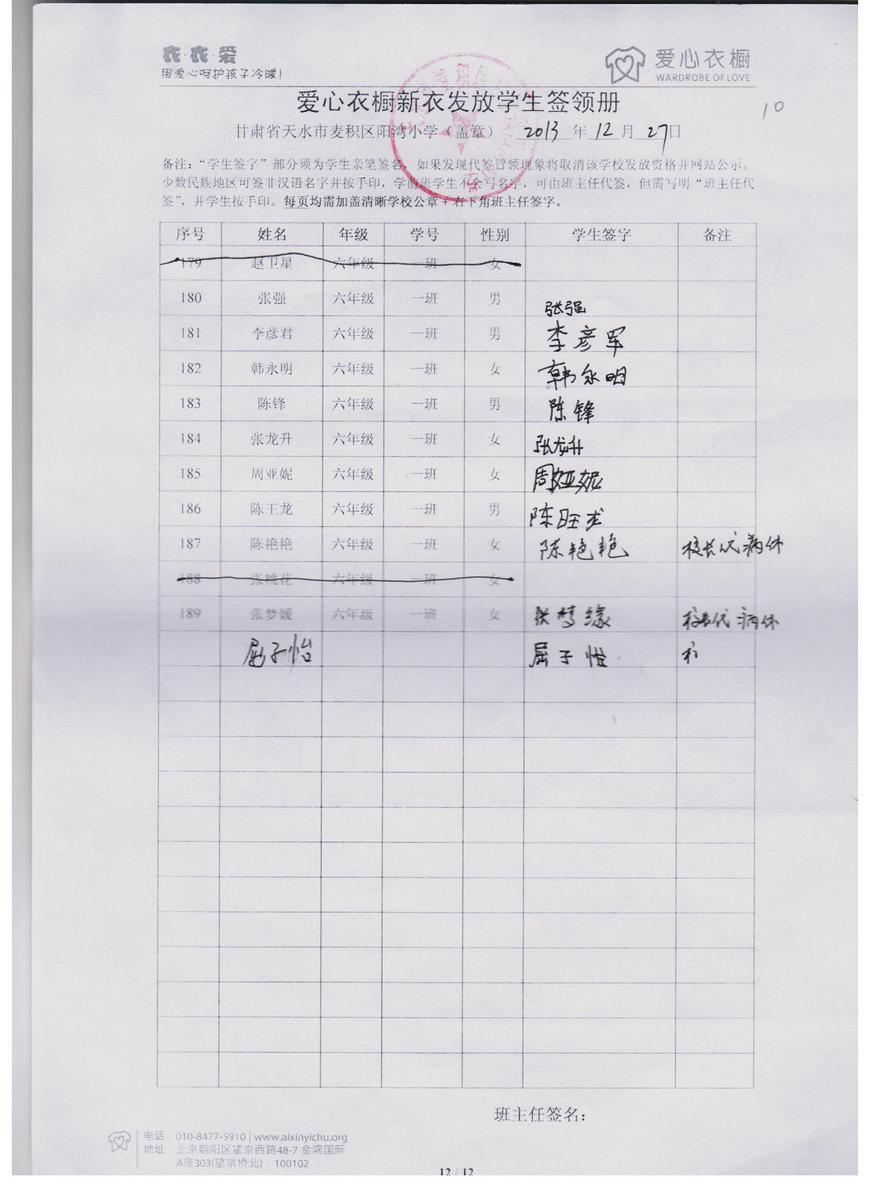 衣·衣·爱
用爱心呵护孩子冷暖!
爱心衣橱
WARDROBE OF LOVE
爱心衣橱新衣发放学生签领册
10
甘肃省天水市麦积区阳湾小学（盖章） 2013 年 12 月 27 日
备注：“学生签字”部分须为学生亲笔签名，如果发现代签冒领现象将取消该学校发放资格并网站公示。
少数民族地区可签非汉语名字并按手印，学前班学生不会写名字，可由班主任代签，但需写明“班主任代
签”，并学生按手印。每页均需加盖清晰学校公章+右下角班主任签字。
序号 姓名 年级 学号 性别 学生签字 备注
179 赵卫星 六年级 一班 女
180 张强 六年级 一班 男 张强
181 李彦君 六年级 一班 男 李彦军
182 韩永明 六年级 一班 女 韩永明
183 陈锋 六年级 一班 男 陈锋
184 张龙升 六年级 一班 女 张龙升
185 周亚妮 六年级 一班 女 周娅妮
186 陈王龙 六年级 一班 男 陈旺龙
187 陈艳艳 六年级 一班 女 陈艳艳 校长代 病休
188 张桃花 六年级 一班 女
189 张梦媛 六年级 一班 女 张梦缘 校长代 病休
屈子怡 屈子怡
班主任签名：
电话：010-8477-5910 | www.aixinyichu.org
地址：北京朝阳区望京西路48-7 金隅国际
A座303(望京桥北)·100102
12 / 12